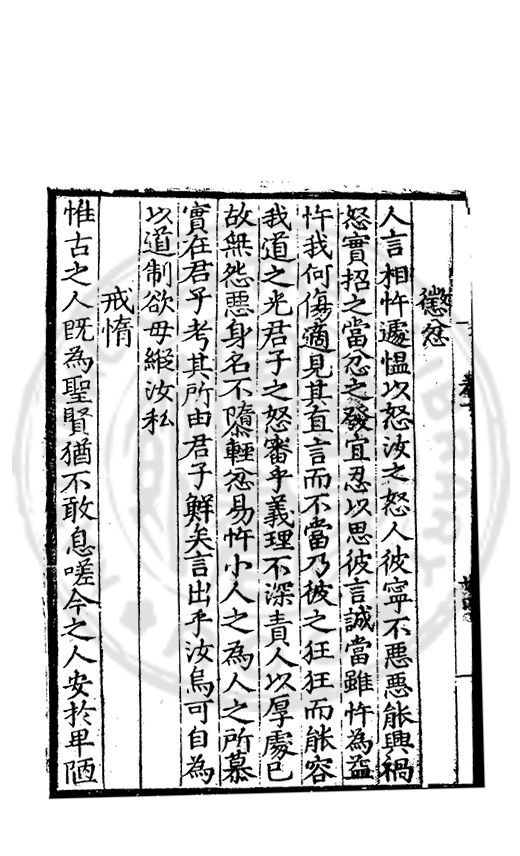 懲忿
人言相忤遽愠以怒汝之怒人彼寧不惡惡能興禍
怒實招之當忿之發宜忍以思彼言誠當雖忤為益
忤我何傷適見其直言而不當乃彼之狂狂而能容
我道之光君子之怒審乎義理不深責人以厚處已
故無怨惡身名不隳輕忿易忤小人之為人之所慕
實在君子考其所由君子鮮矣言出乎汝烏可自為
以道制欲毋縱汝私
戒惰
惟古之人既為聖賢猶不敢息嗟今之人安於卑陋